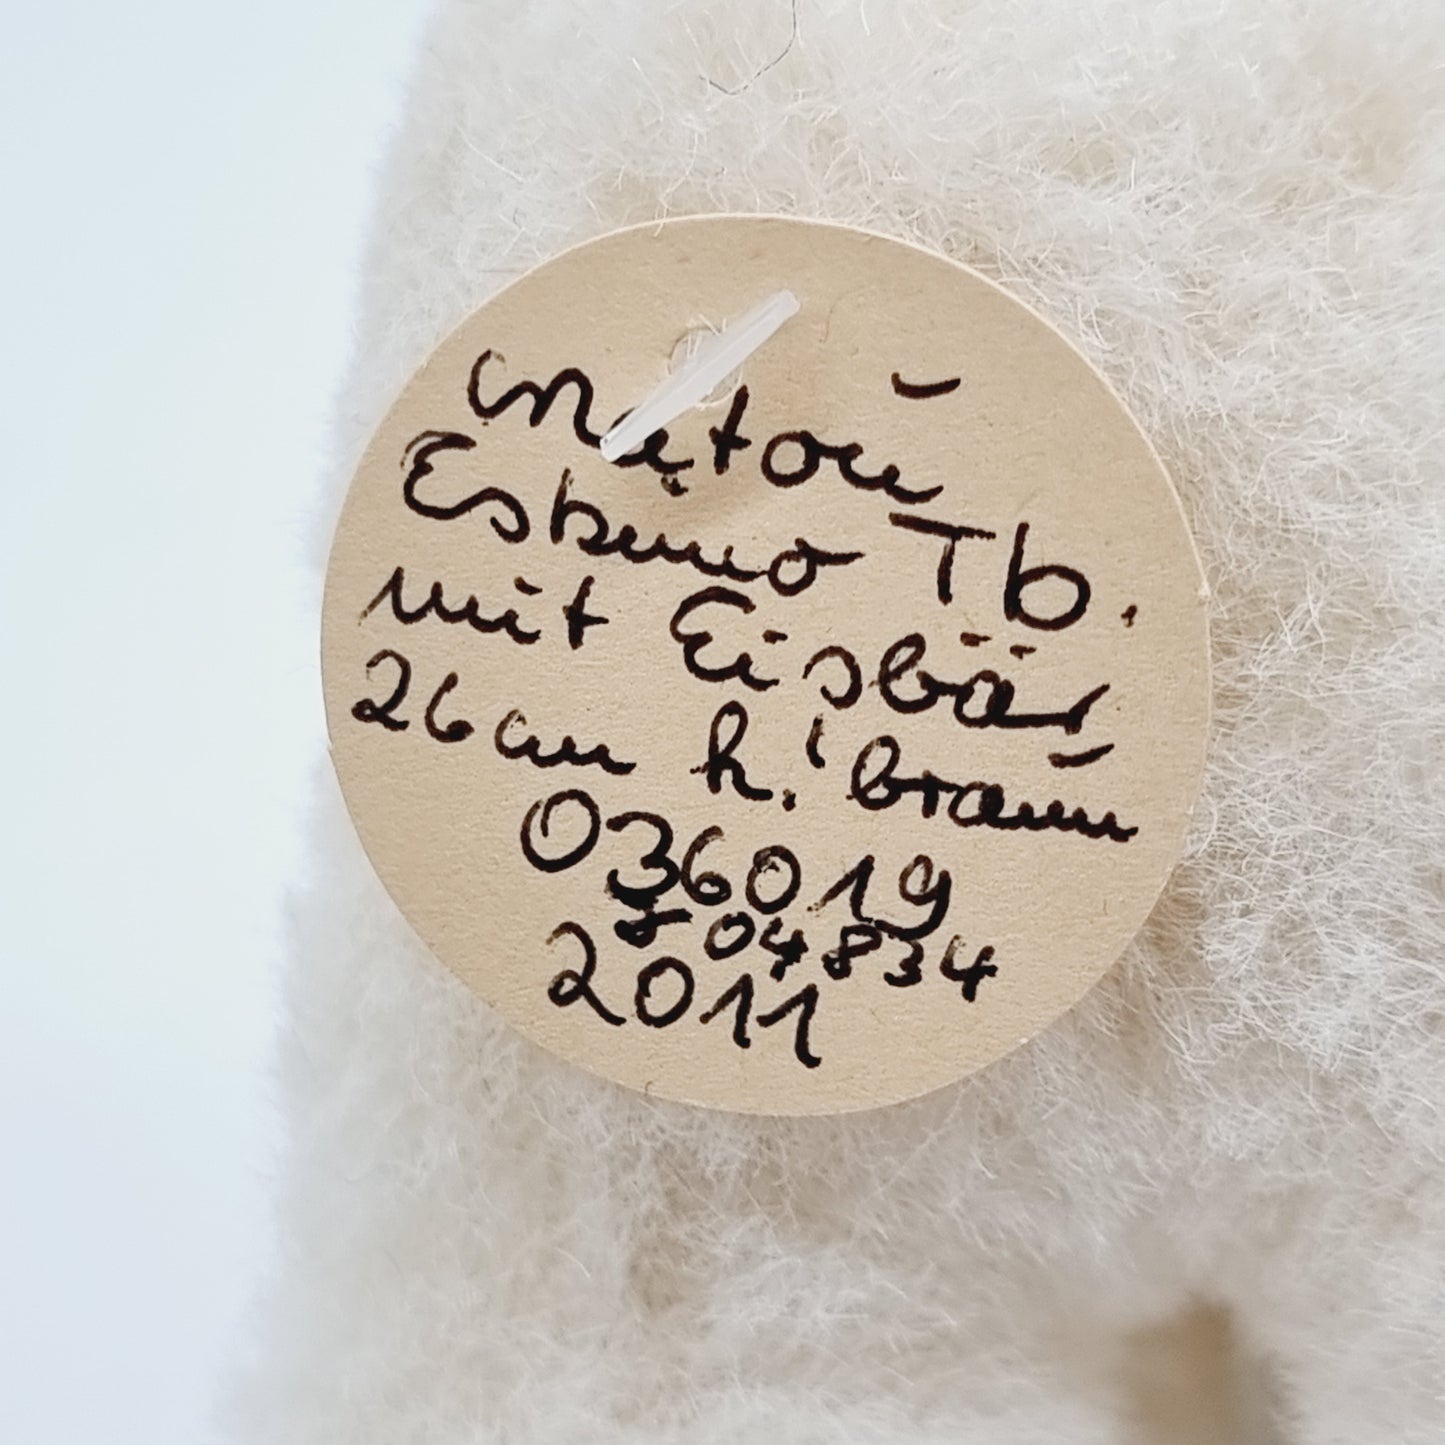 Natou
Eskimo Tb.
mit Eisbär
26 cm h. braun
036019
04834
2011